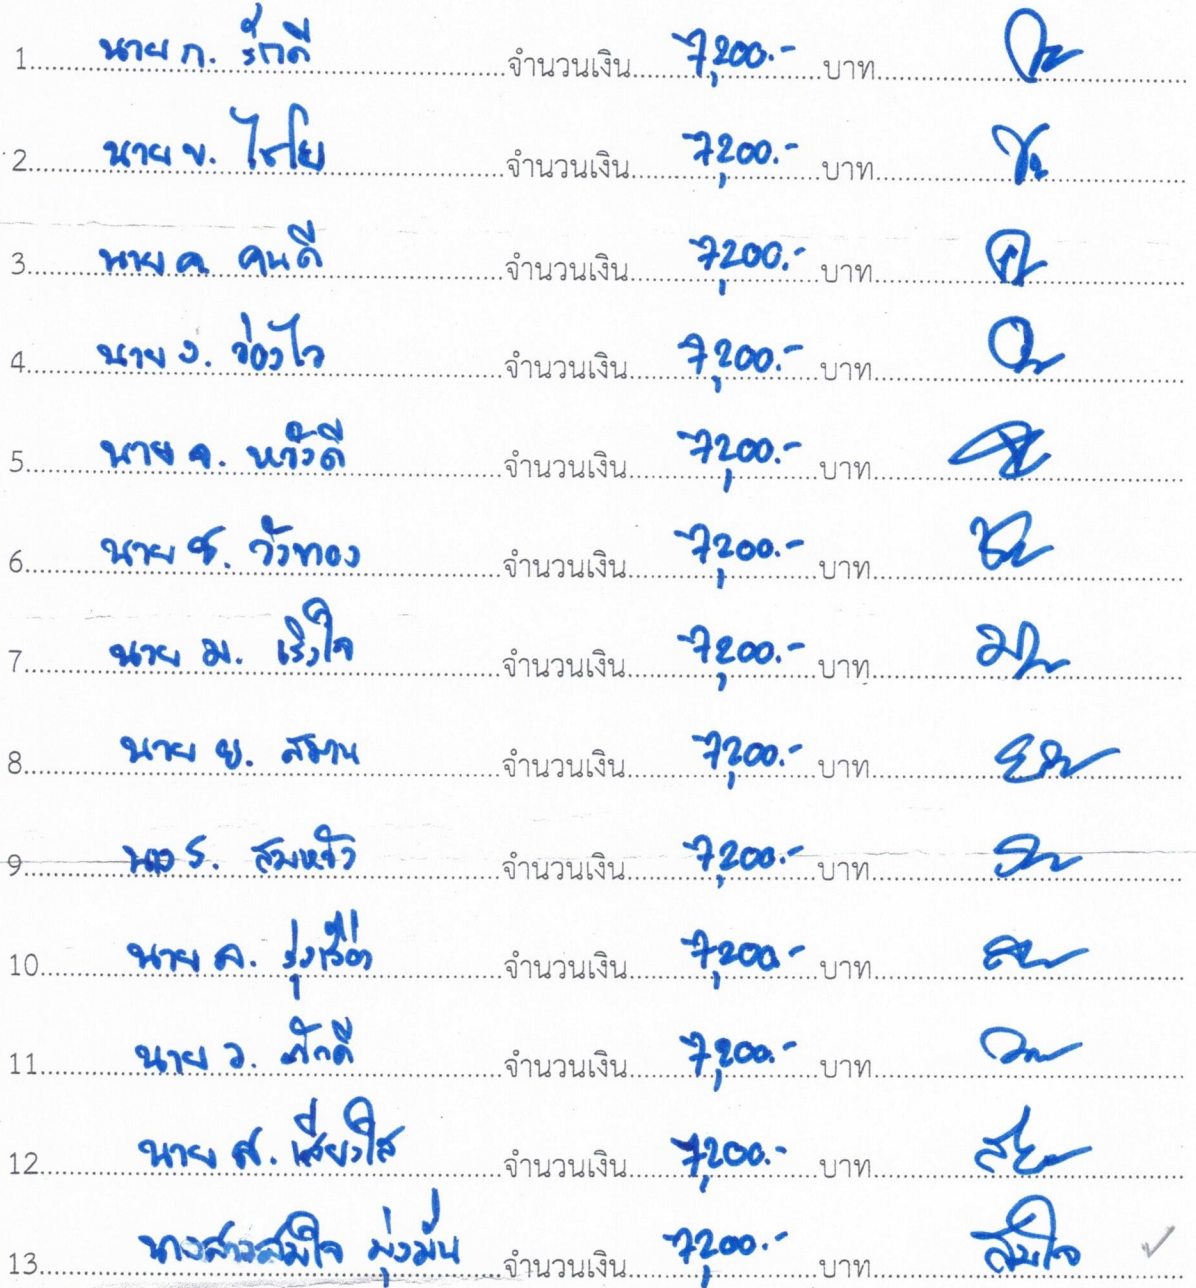 1 นาย ก. รักดี จำนวนเงิน 7,200.- บาท
2 นาย ข. ไชโย จำนวนเงิน 7,200.- บาท
3 นาย ค. คนดี จำนวนเงิน 7,200.- บาท
4 นาย ง. ว่องไว จำนวนเงิน 7,200.- บาท
5 นาย จ. หวังดี จำนวนเงิน 7,200.- บาท
6 นาย ช. วังทอง จำนวนเงิน 7,200.- บาท
7 นาย ม. เริงใจ จำนวนเงิน 7,200.- บาท
8 นาย ย. สมาน จำนวนเงิน 7,200.- บาท
9 ร. สมหวัง จำนวนเงิน 7,200.- บาท
10 นาย ล. รุ่งเรือง จำนวนเงิน 7,200.- บาท
11 นาย ว. ภักดี จำนวนเงิน 7,200.- บาท
12 นาย ส. เสียงใส จำนวนเงิน 7,200.- บาท
13 นางสาวสมใจ มุ่งมั่น จำนวนเงิน 7,200.- บาท สมใจ